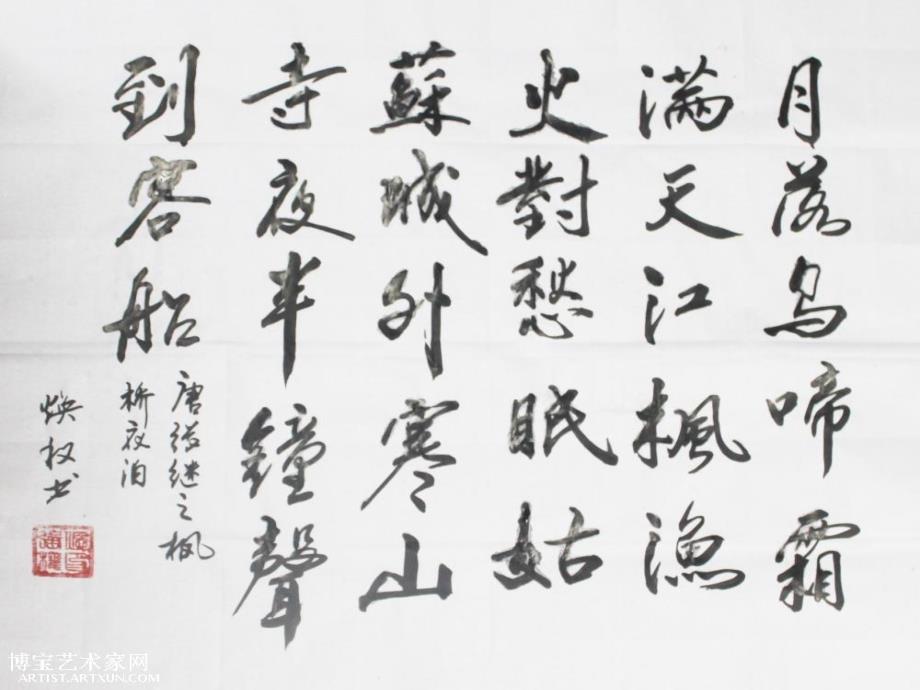 月落烏啼霜
满天江楓漁
火對愁眠姑
蘇城外寒山
寺夜半鐘聲
到客船
唐张继之楓
桥夜泊
焕权书
博宝艺术家网
ARTIST.ARTXUN.COM